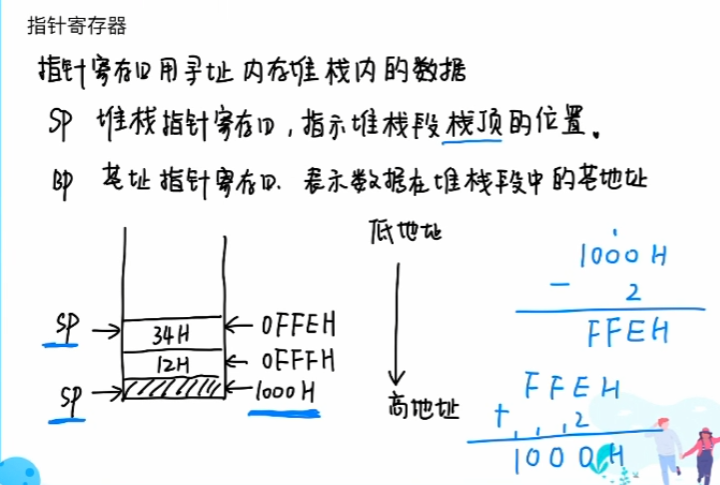 指针寄存器
指针寄存四用寻址内存堆栈内的数据
SP 堆栈指针寄存四，指示堆栈段栈顶的位置。
BP 基址指针寄存四. 表示数据在堆栈段中的基地址
低地址
SP → 34H ← 0FFEH
12H ← 0FFFH
SP → ← 1000H
高地址
1000H
- 2
FFEH
FFEH
+ 1 1 1 2
1000H